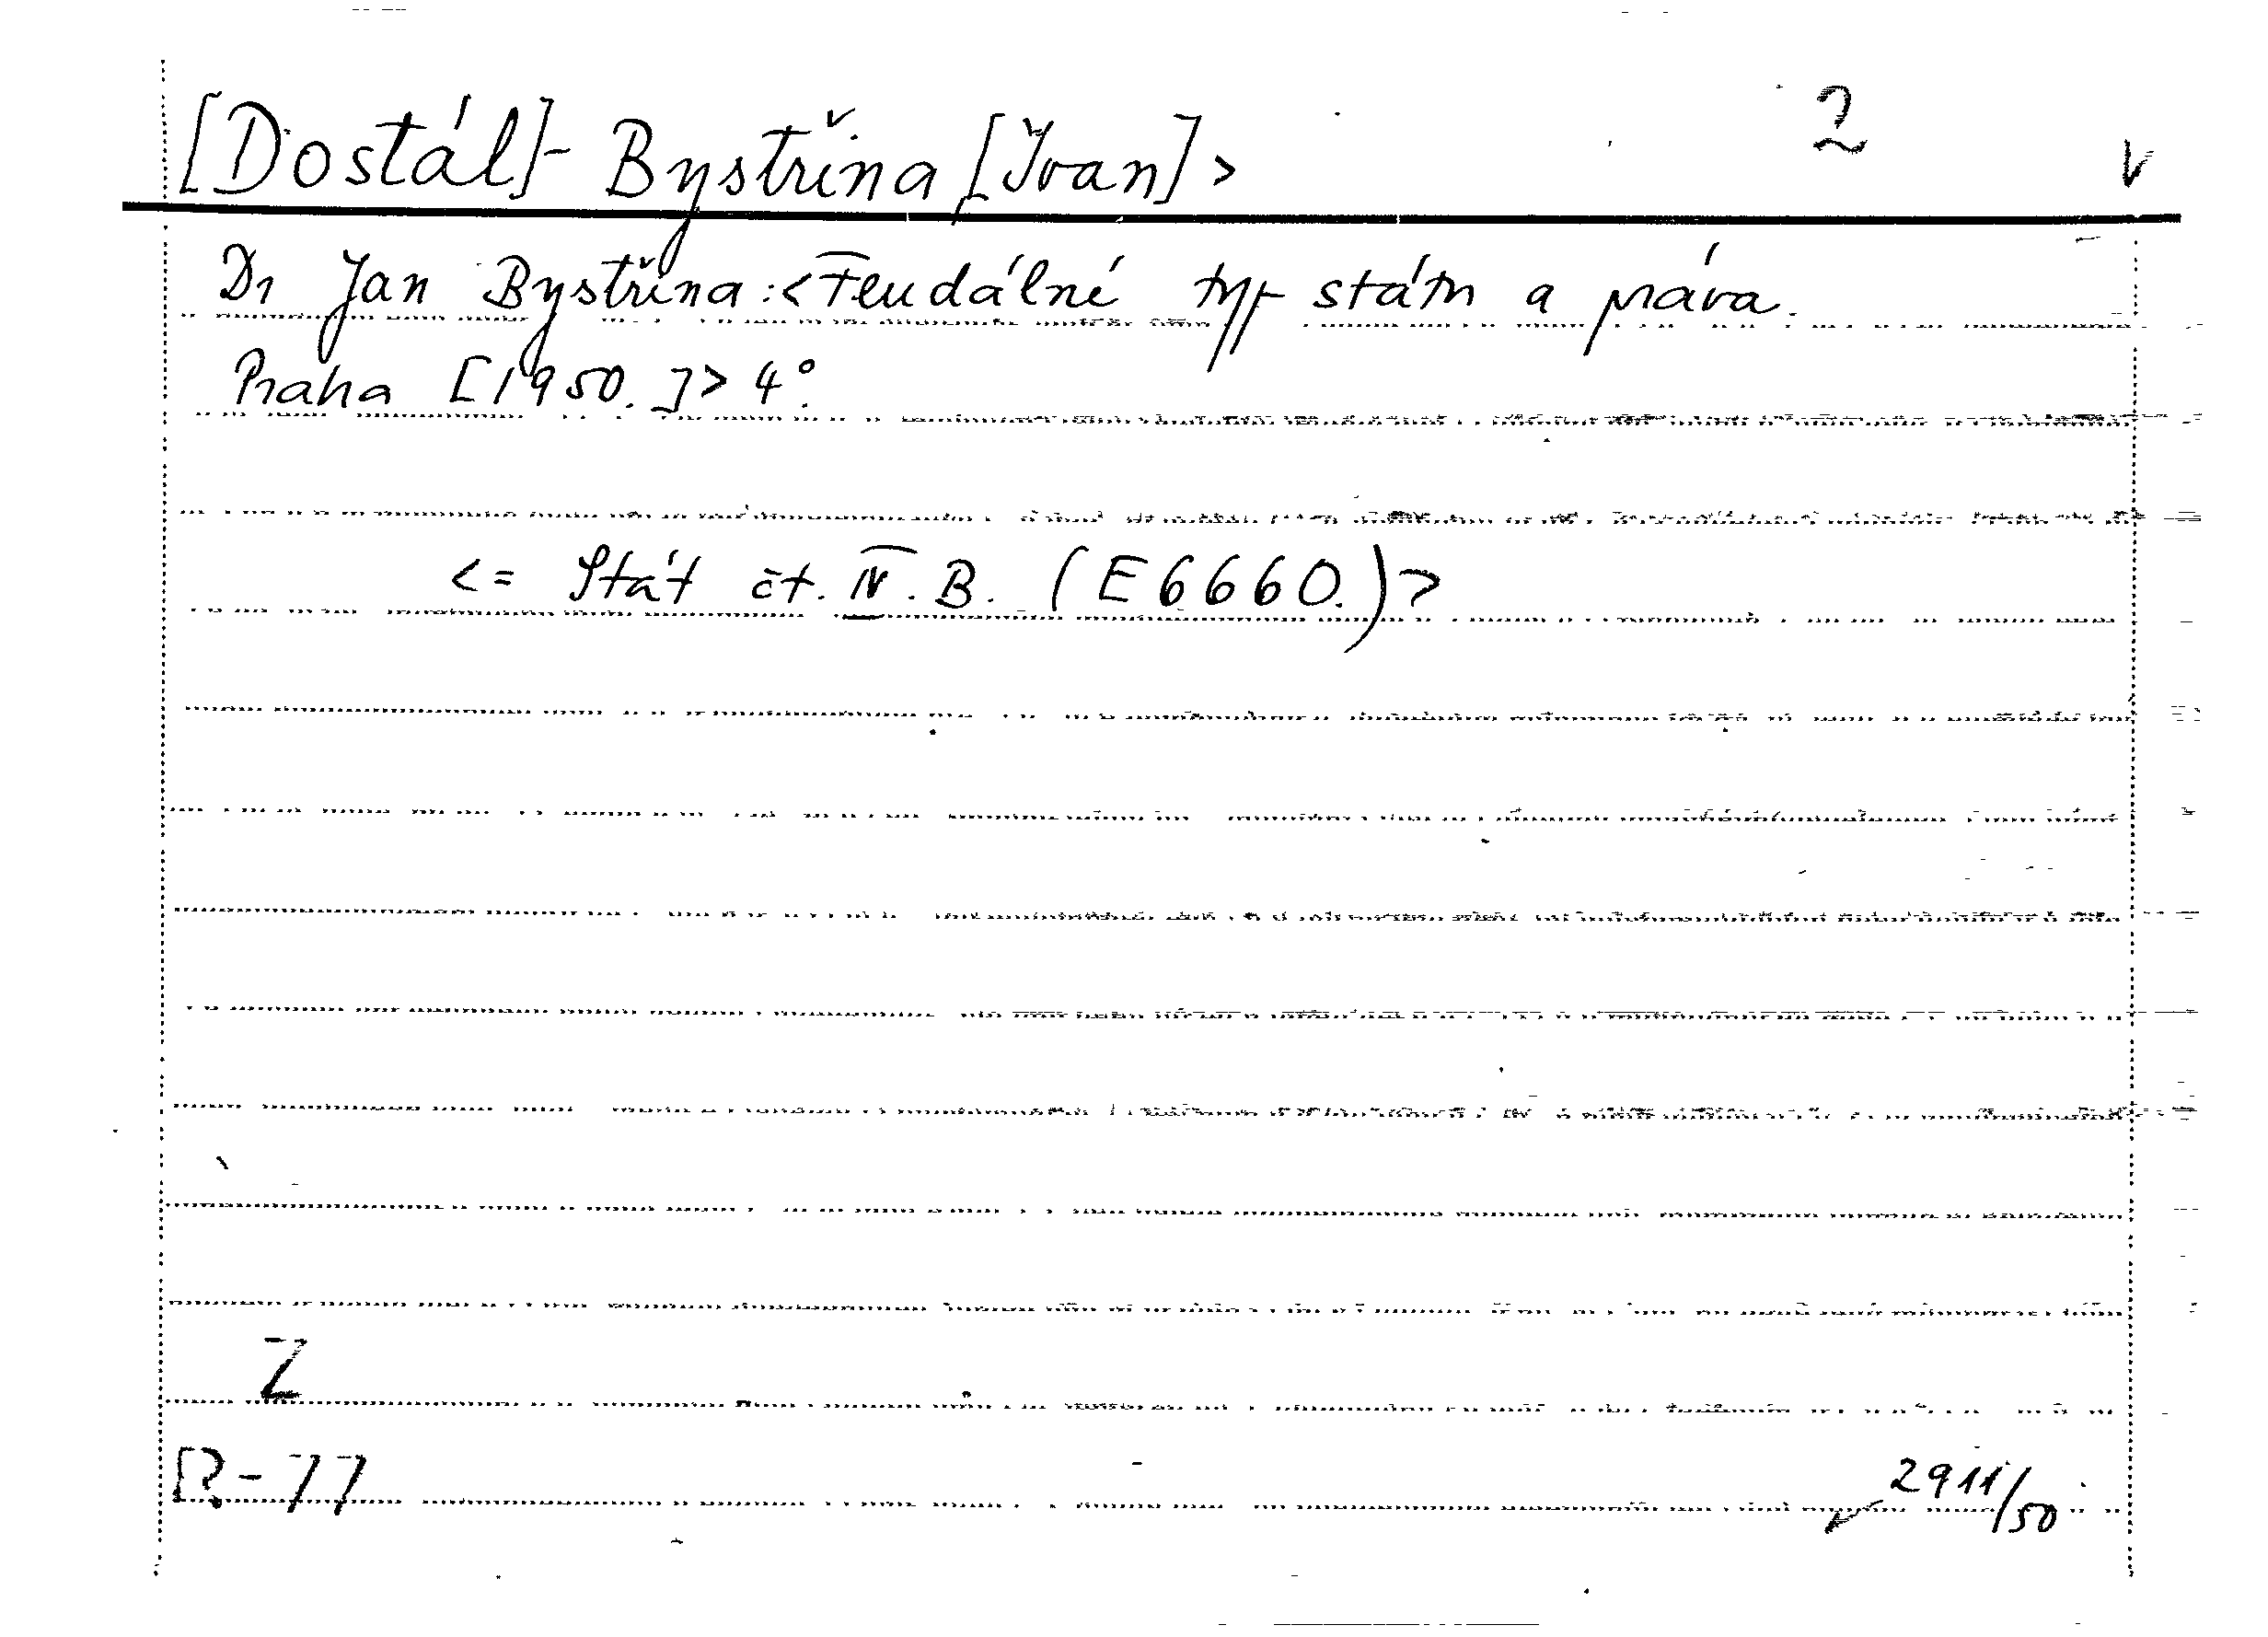 [Dostál]- Bystřina [Ivan]> 2 v
Dr Jan Bystřina: <Feudálné typ státu a práva.
Praha [1950.]> 4°.
<= Stát čt. IV. B. (E6660.)>
Z
[?-77
2911/50